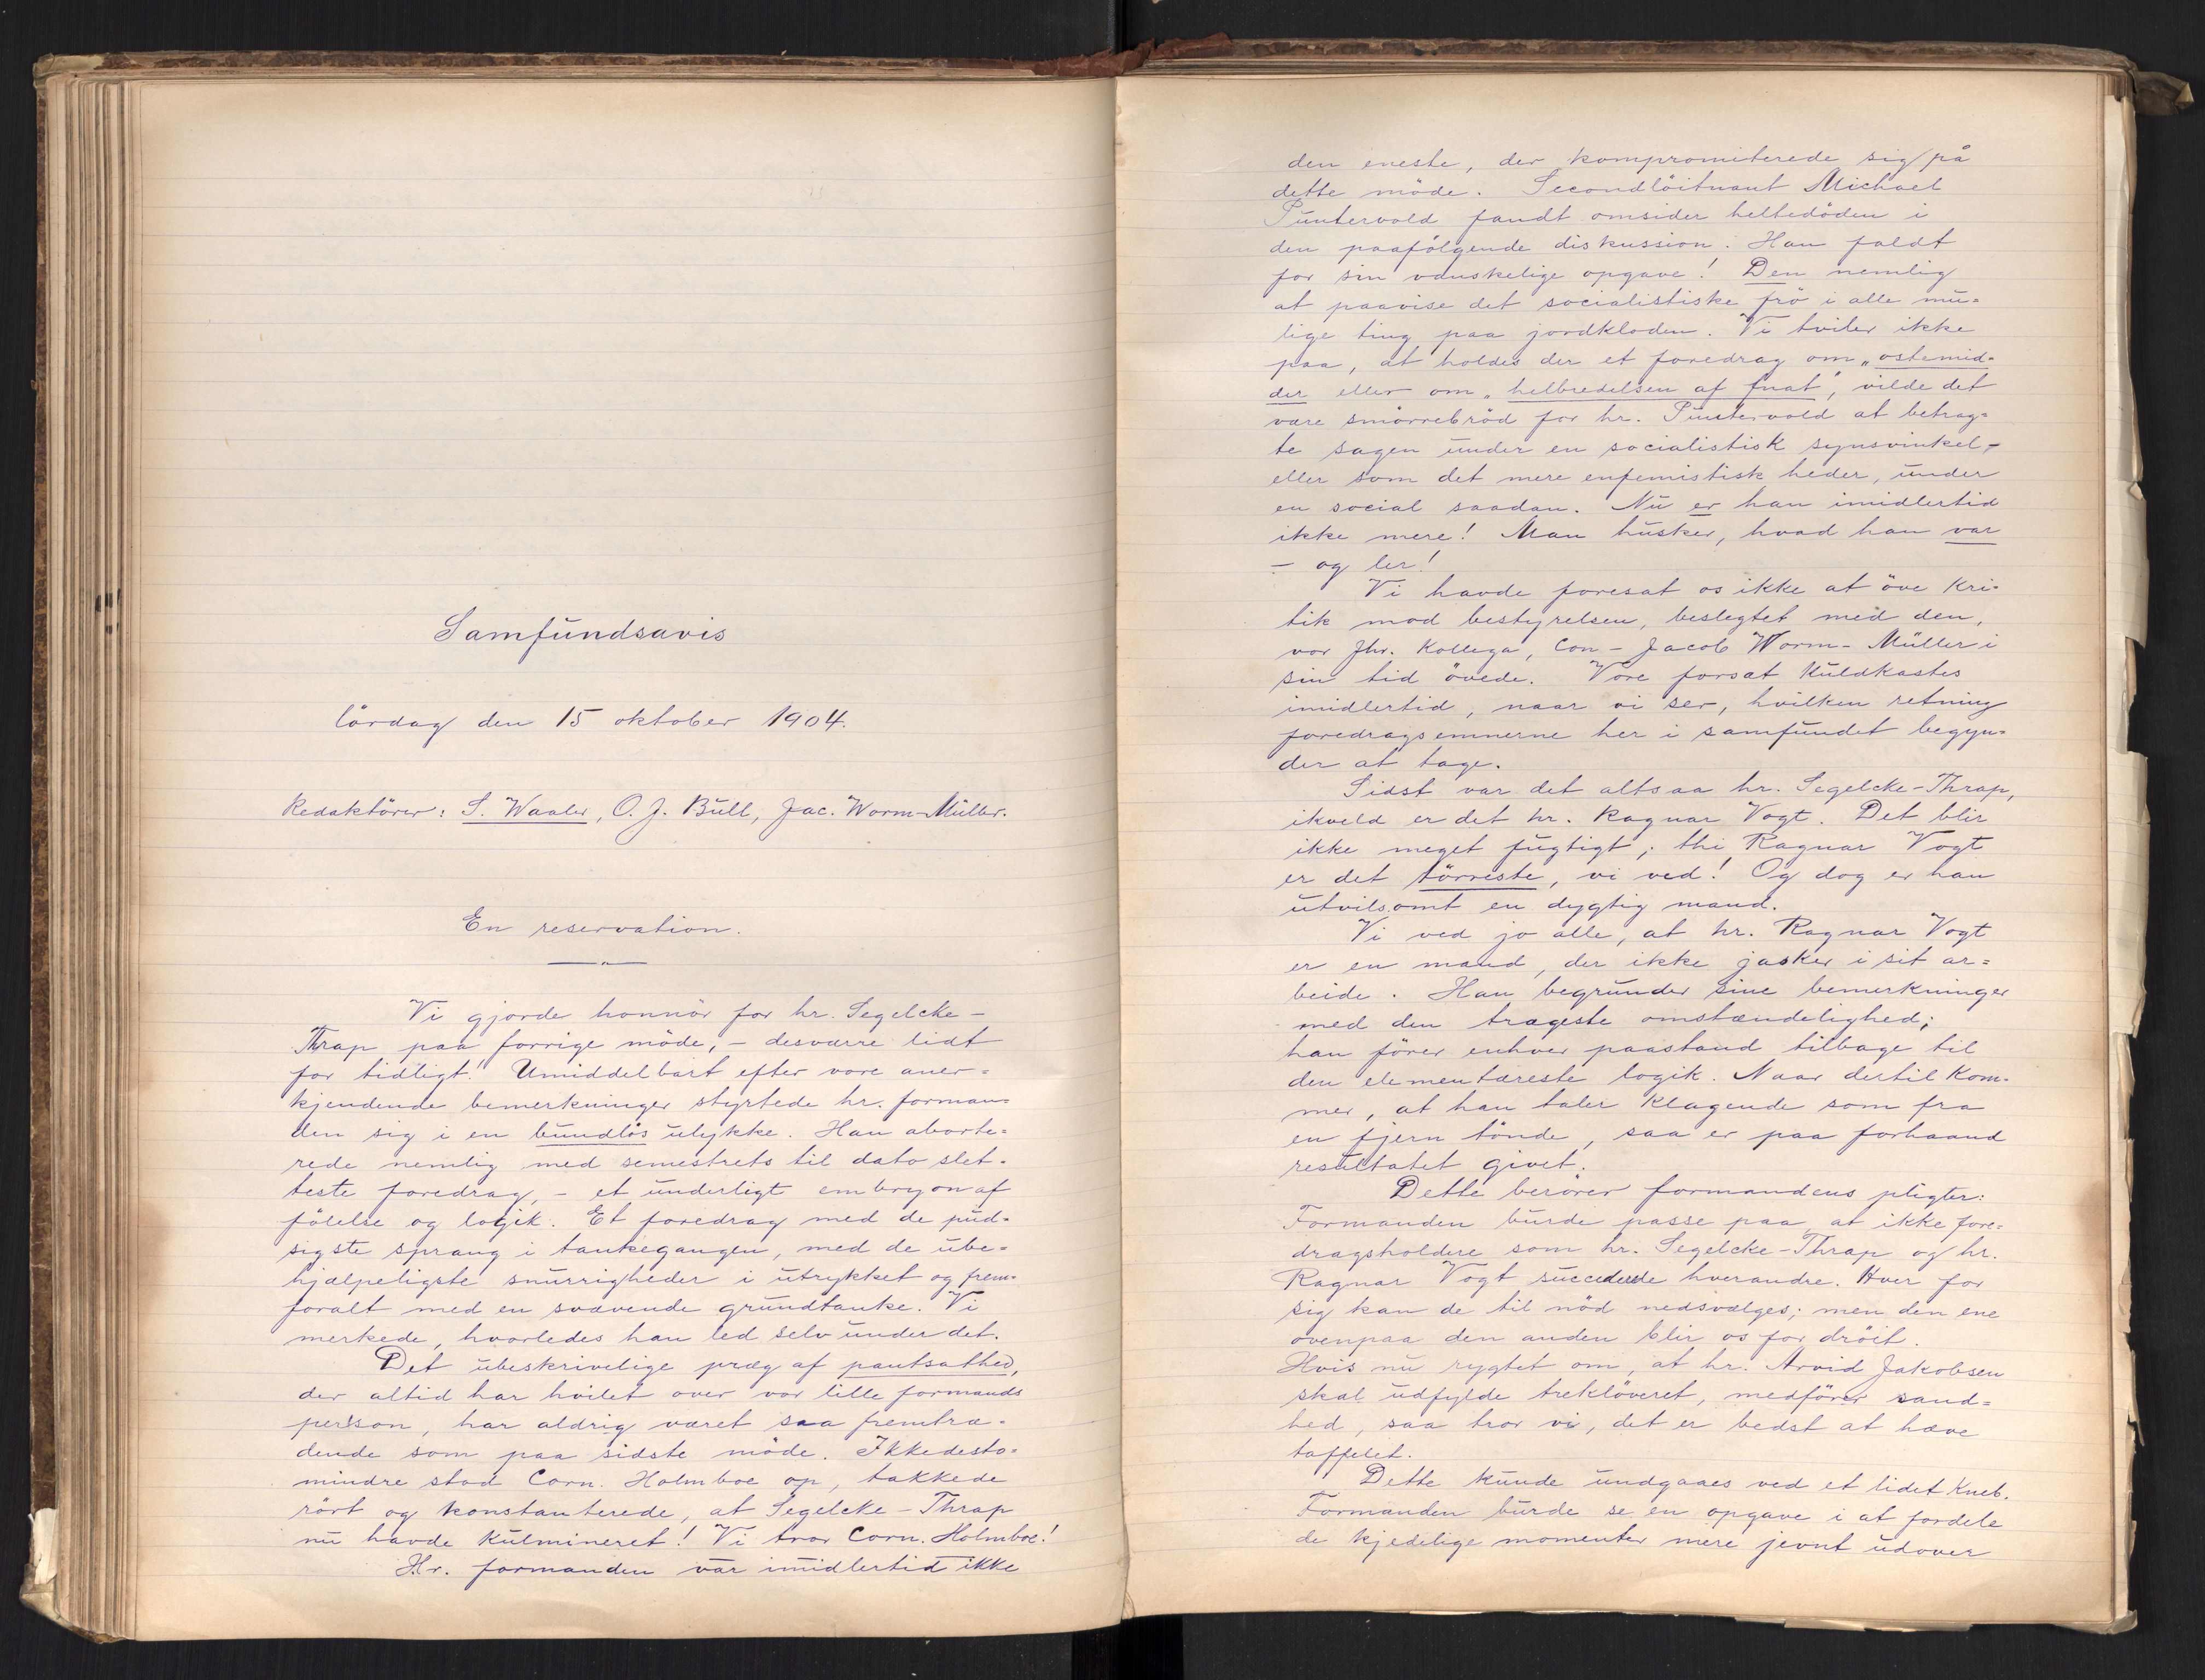 Samfundsavis
lördag den 15 oktober 1904.
Redaktörer: S. Waaler, O. J. Bull, Jac. Worm-Müller.
En reservation.
Vi gjorde honnör for hr. Segelcke-
Thrap paa forrige möde, – desværre lidt
for tidligt! Umiddelbart efter vore aner=
kjendende bemerkninger styrtede hr. forman=
den sig i en bundlös ulykke. Han aborte=
rede nemlig med semestrets til dato slet=
teste foredrag, – et underligt embryon af
fölelse og logik. Et foredrag med de pud=
sigste sprang i tankegangen, med de ube=
hjælpeligste snurrigheder i utrykket og frem=
foralt med en svævende grundtanke. Vi
merkede, hvorledes han led selv under det.
Det ubeskrivelige præg af pantsathed,
der altid har hvilet over vor lille formands
person, har aldrig været saa fremtræ=
dende som paa sidste möde. Ikkedesto=
mindre stod Corn. Holmboe op, takkede
rört og konstanterede, at Segelcke-Thrap
nu havde kulmineret! Vi tror Corn. Holmboe!
Hr. formanden var imidlertid ikke
den eneste, der kompromiterede sig på
dette möde. Secondlöitnant Michael
Puntervold fandt omsider heltedöden i
den paafölgende diskussion. Han faldt
for sin vanskelige opgave! Den nemlig
at paavise det socialistiske frö i alle mu=
lige ting paa jordkloden. Vi tviler ikke
paa, at holdes der et foredrag om „ostemid=
der eller om „helbredelsen af fnat“, vilde det
være smörrebröd for hr. Puntervold at betrag=
te sagen under en socialistisk synsvinkel, –
eller som det mere eufemistisk heder, under
en social saadan. Nu er han imidlertid
ikke mere! Man husker, hvad han var
– og ler!
Vi havde foresat os ikke at öve kri=
tik mod bestyrelsen, beslegtet med den,
vor Hr. Kollega, Con-Jacob Worm-Müller i
sin tid övede. Vore forsæt kuldkastes
imidlertid, naar vi ser, hvilken retning
foredragsemnerne her i samfundet begyn=
der at tage.
Sidst var det altsaa hr. Segelcke-Thrap,
ikveld er det hr. Ragnar Vogt. Det blir
ikke meget fugtigt; thi Ragnar Vogt
er det törreste, vi ved! Og dog er han
utvilsomt en dygtig mand.
Vi ved jo alle, at hr. Ragnar Vogt
er en mand, der ikke jasker i sit ar=
beide. Han begrunder sine bemerkninger
med den trægeste omstændelighed;
han förer enhver paastand tilbage til
den elementæreste logik. Naar dertil kom=
mer, at han taler klagende som fra
en fjern tönde, saa er paa forhaand
resultatet givet.
Dette berörer formandens pligter:
Formanden burde passe paa, at ikke fore=
dragsholdere som hr. Segelcke-Thrap og hr.
Ragnar Vogt succederede hverandre. Hver for
sig kan de til nöd nedsvælges; men den ene
ovenpaa den anden blir os for dröit.
Hvis nu rygtet om, at hr. Arvid Jakobsen
skal udfylde treklöveret, medförer sand=
hed, saa tror vi, det er bedst at hæve
taffelet.
Dette kunde undgaaes ved et lidet kneb.
Formanden burde se en opgave i at fordele
de kjedelige momenter mere jevnt udover